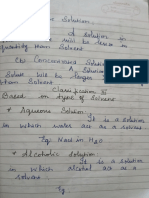 Solution.
A solution in
will be less in
quantity than Solvent
(b) Concentrated Solution
A Solution
Solute will be larger
than Solvent
Classification
Based on type of Solvent
* Aqueous Solution
It is a solution
in which water act as a solvent
Eg: NaCl in H₂O
* Alcoholic Solution
It is a solution
in which alcohol act as a
solvent
Eg